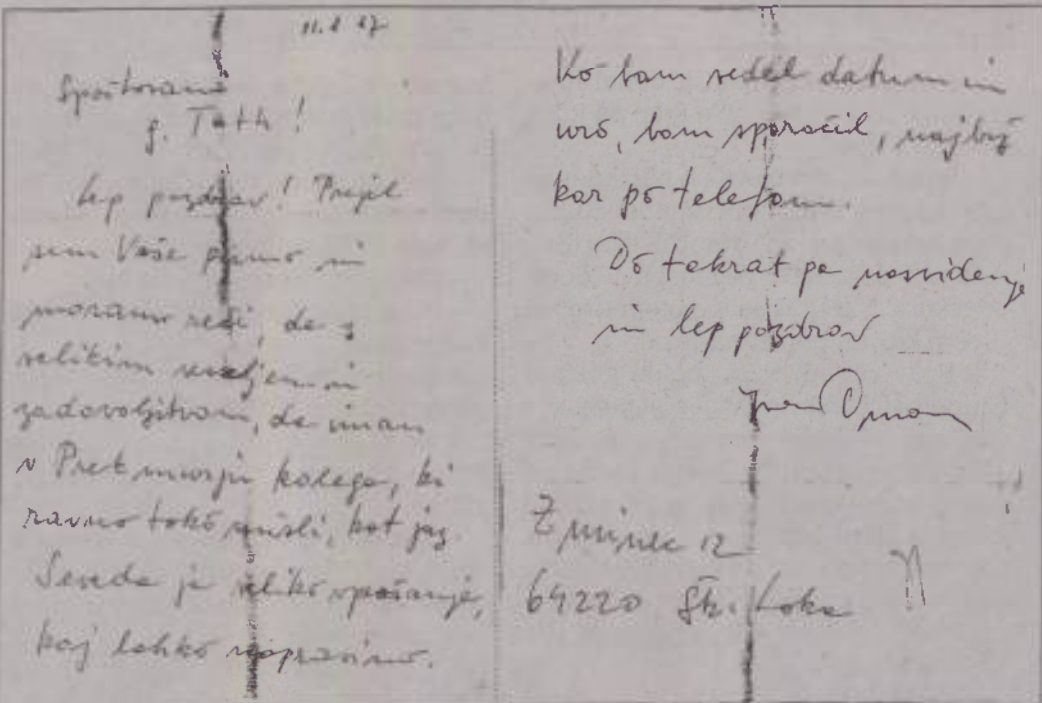 11. 2 87
Spoštovani
g. Toth!
Lep pozdrav! Prejel
sem Vaše pismo in
moram reči, da z
velikim veseljem in
zadovoljstvom, da imam
v Prekmurju kolega, ki
ravno tako misli, kot jaz.
Seveda je veliko vprašanje,
kaj lahko napravimo.
Ko bom vedel datum in
uro, bom sporočil, najbrž
kar po telefonu.
Do takrat pa nasvidenje
in lep pozdrav
Ivan Oman
Zminec 12
64220 Šk. Loka